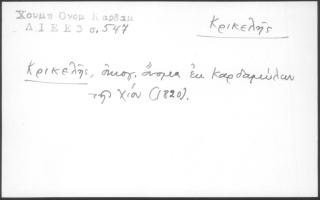 Χουμη Ονομ Καρδαμ
ΔΙΕΕ3 σ.547
Κρικελῆς
Κρικελῆς, οἰκογ. ὄνομα ἐκ Καρδαμύλων
τῆς Χίου (1820).